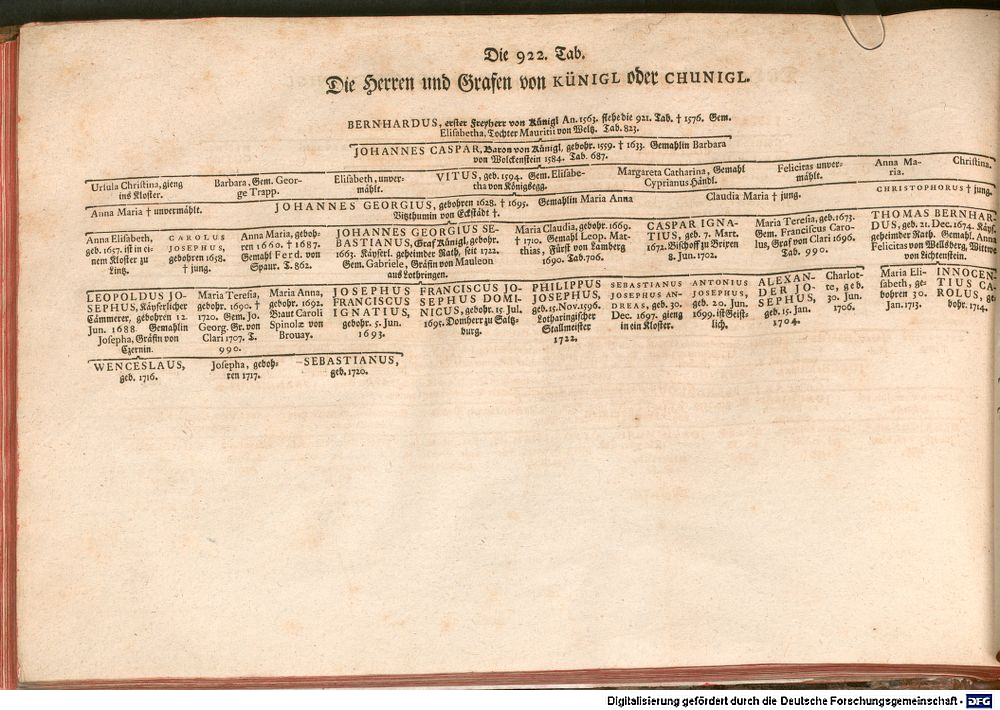 Die 922. Tab.
Die Herren und Grafen von KÜNIGL oder CHUNIGL.
BERNHARDUS, erster Freyherr von Künigl An. 1563. siehe die 921. Tab. † 1576. Gem.
Elisabetha, Tochter Mauritii von Weltz. Tab. 823.
JOHANNES CASPAR, Baron von Künigl, gebohr. 1559. † 1633. Gemahlin Barbara
von Wolckenstein 1584. Tab. 687.
Ursula Christina, gieng
ins Kloster.
Barbara, Gem. Geor-
ge Trapp.
Elisabeth, unver-
mählt.
VITUS, geb. 1594. Gem. Elisabe-
tha von Königsegg.
Margareta Catharina, Gemahl
Cyprianus Händl.
Felicitas unver-
mählt.
Anna Ma-
ria.
Christina.
Anna Maria † unvermählt.
JOHANNES GEORGIUS, gebohren 1628. † 1695. Gemahlin Maria Anna
Vitzthumin von Eckstädt †.
Claudia Maria † jung.
CHRISTOPHORUS † jung.
Anna Elisabeth,
geb. 1657. ist in ei-
nem Kloster zu
Lintz.
CAROLUS
JOSEPHUS,
gebohren 1658.
† jung.
Anna Maria, geboh-
ren 1660. † 1687.
Gemahl Ferd. von
Spaur. T. 862.
JOHANNES GEORGIUS SE-
BASTIANUS, Graf Künigl, gebohr.
1663. Käyserl. geheimder Rath, seit 1722.
Gem. Gabriele, Gräfin von Mauleon
aus Lothringen.
Maria Claudia, gebohr. 1669.
† 1710. Gemahl Leop. Mat-
thias, Fürst von Lamberg
1690. Tab. 706.
CASPAR IGNA-
TIUS, geb. 7. Mart.
1672. Bischoff zu Brixen
8. Jun. 1702.
Maria Teresia, geb. 1673.
Gem. Franciscus Caro-
lus, Graf von Clari 1696.
Tab. 990.
THOMAS BERNHAR-
DUS, geb. 21. Dec. 1674. Käys.
geheimder Rath. Gemahl. Anna
Felicitas von Welsberg, Wittwe
von Lichtenstein.
LEOPOLDUS JO-
SEPHUS, Käyserlicher
Cämmerer, gebohren 12.
Jun. 1688. Gemahlin
Josepha, Gräfin von
Czernin.
Maria Teresia,
gebohr. 1690. †
1720. Gem. Jo.
Georg. Gr. von
Clari 1707. T.
990.
Maria Anna,
gebohr. 1692.
Braut Caroli
Spinolæ von
Brouay.
JOSEPHUS
FRANCISCUS
IGNATIUS,
gebohr. 5. Jun.
1693.
FRANCISCUS JO-
SEPHUS DOMI-
NICUS, gebohr. 15. Jul.
1695. Domherr zu Saltz-
burg.
PHILIPPUS
JOSEPHUS,
geb. 15. Nov. 1596.
Lotharingischer
Stallmeister
1722.
SEBASTIANUS
JOSEPHUS AN-
DREAS, geb. 30.
Dec. 1697. gieng
in ein Kloster.
ANTONIUS
JOSEPHUS,
geb. 20. Jun.
1699. ist Geist-
lich.
ALEXAN-
DER JO-
SEPHUS,
geb. 15. Jan.
1704.
Charlot-
te, geb.
30. Jun.
1706.
Maria Eli-
sabeth, ge-
bohren 30.
Jan. 1713.
INNOCEN-
TIUS CA-
ROLUS, ge-
bohr. 1714.
WENCESLAUS,
geb. 1716.
Josepha, geboh-
ren 1717.
SEBASTIANUS,
geb. 1720.
Digitalisierung gefördert durch die Deutsche Forschungsgemeinschaft - DFG